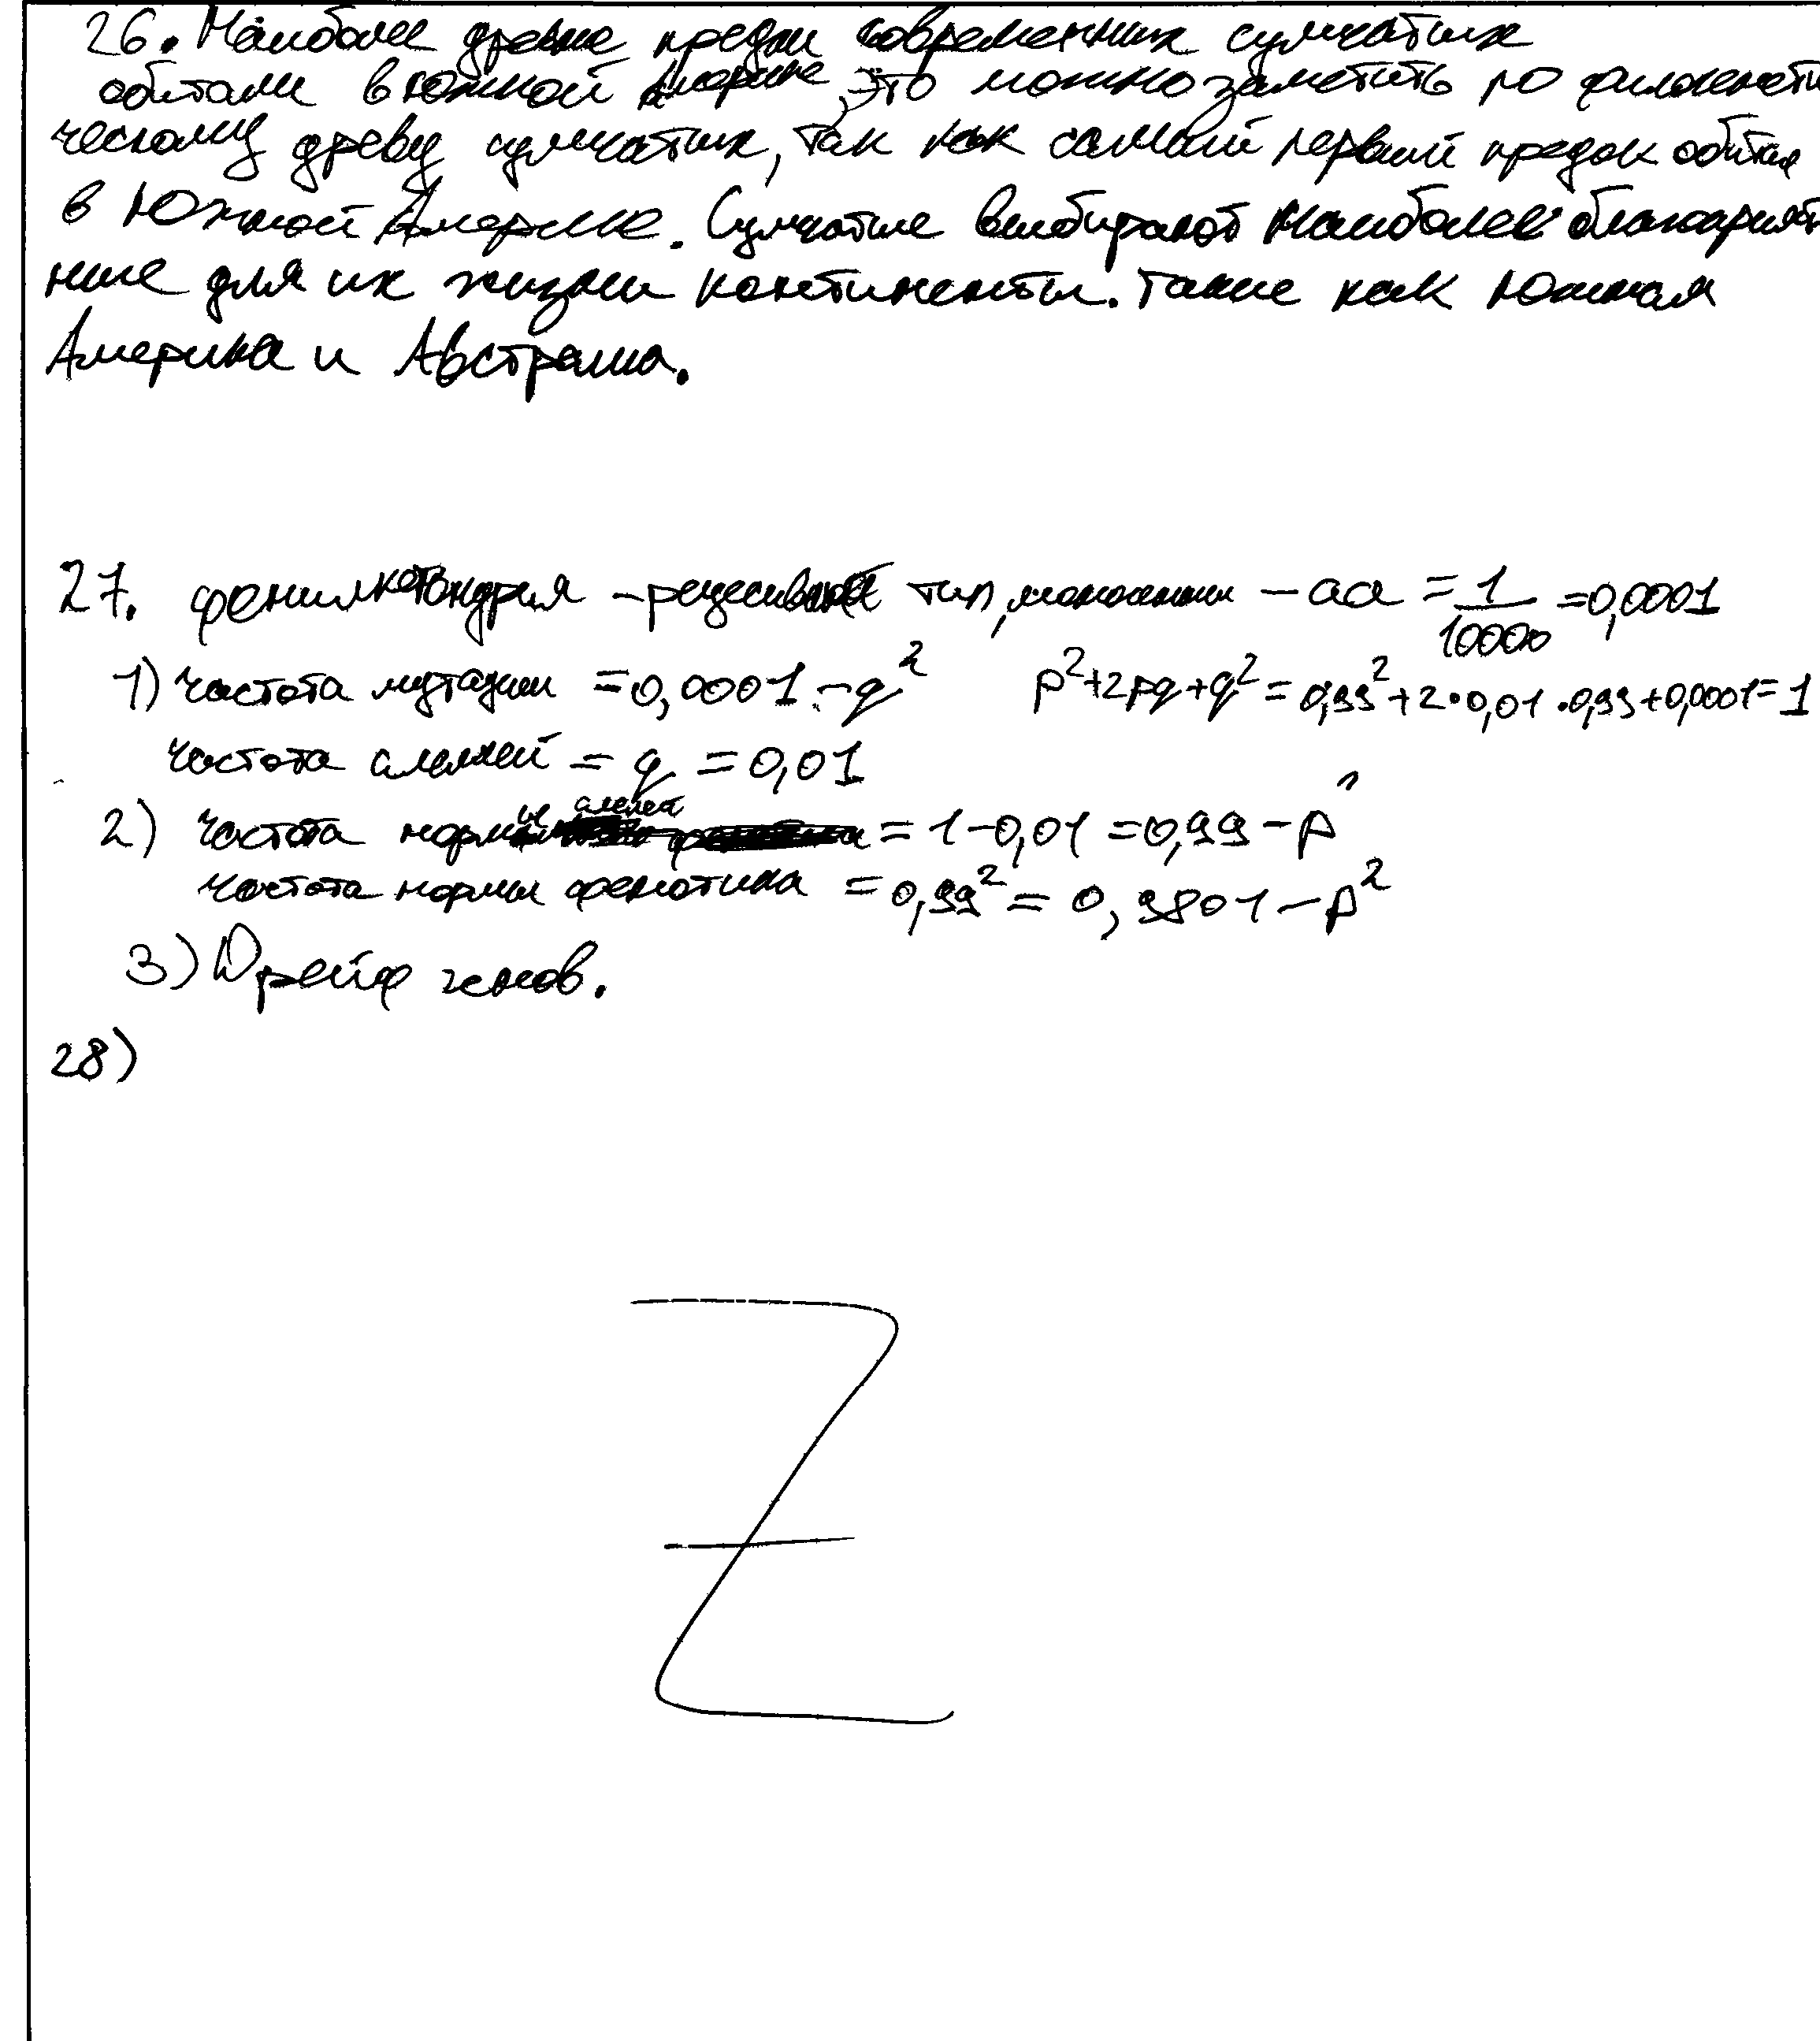 26. Наиболее древние предки современных сумчатых
обитали в Южной Америке, это можно заметить по филогенети
ческому древу сумчатых, так как самый первый предок обитал
в Южной Америке. Сумчатые выбирают наиболее благоприят
ные для их жизни континенты. Такие как Южная
Америка и Австралия.
27. фенилкетонурия - рецессивный тип, - aa = 1/10000 = 0,0001
1) частота мутации = 0,0001 - q² p²+2pq+q² = 0,99²+2•0,01•0,99+0,0001=1
частота аллелей = q = 0,01
2) частота нормы аллелей = 1-0,01 = 0,99 - p
частота нормы фенотипа = 0,99² = 0,9801 - p²
3) Дрейф генов.
28)
Z